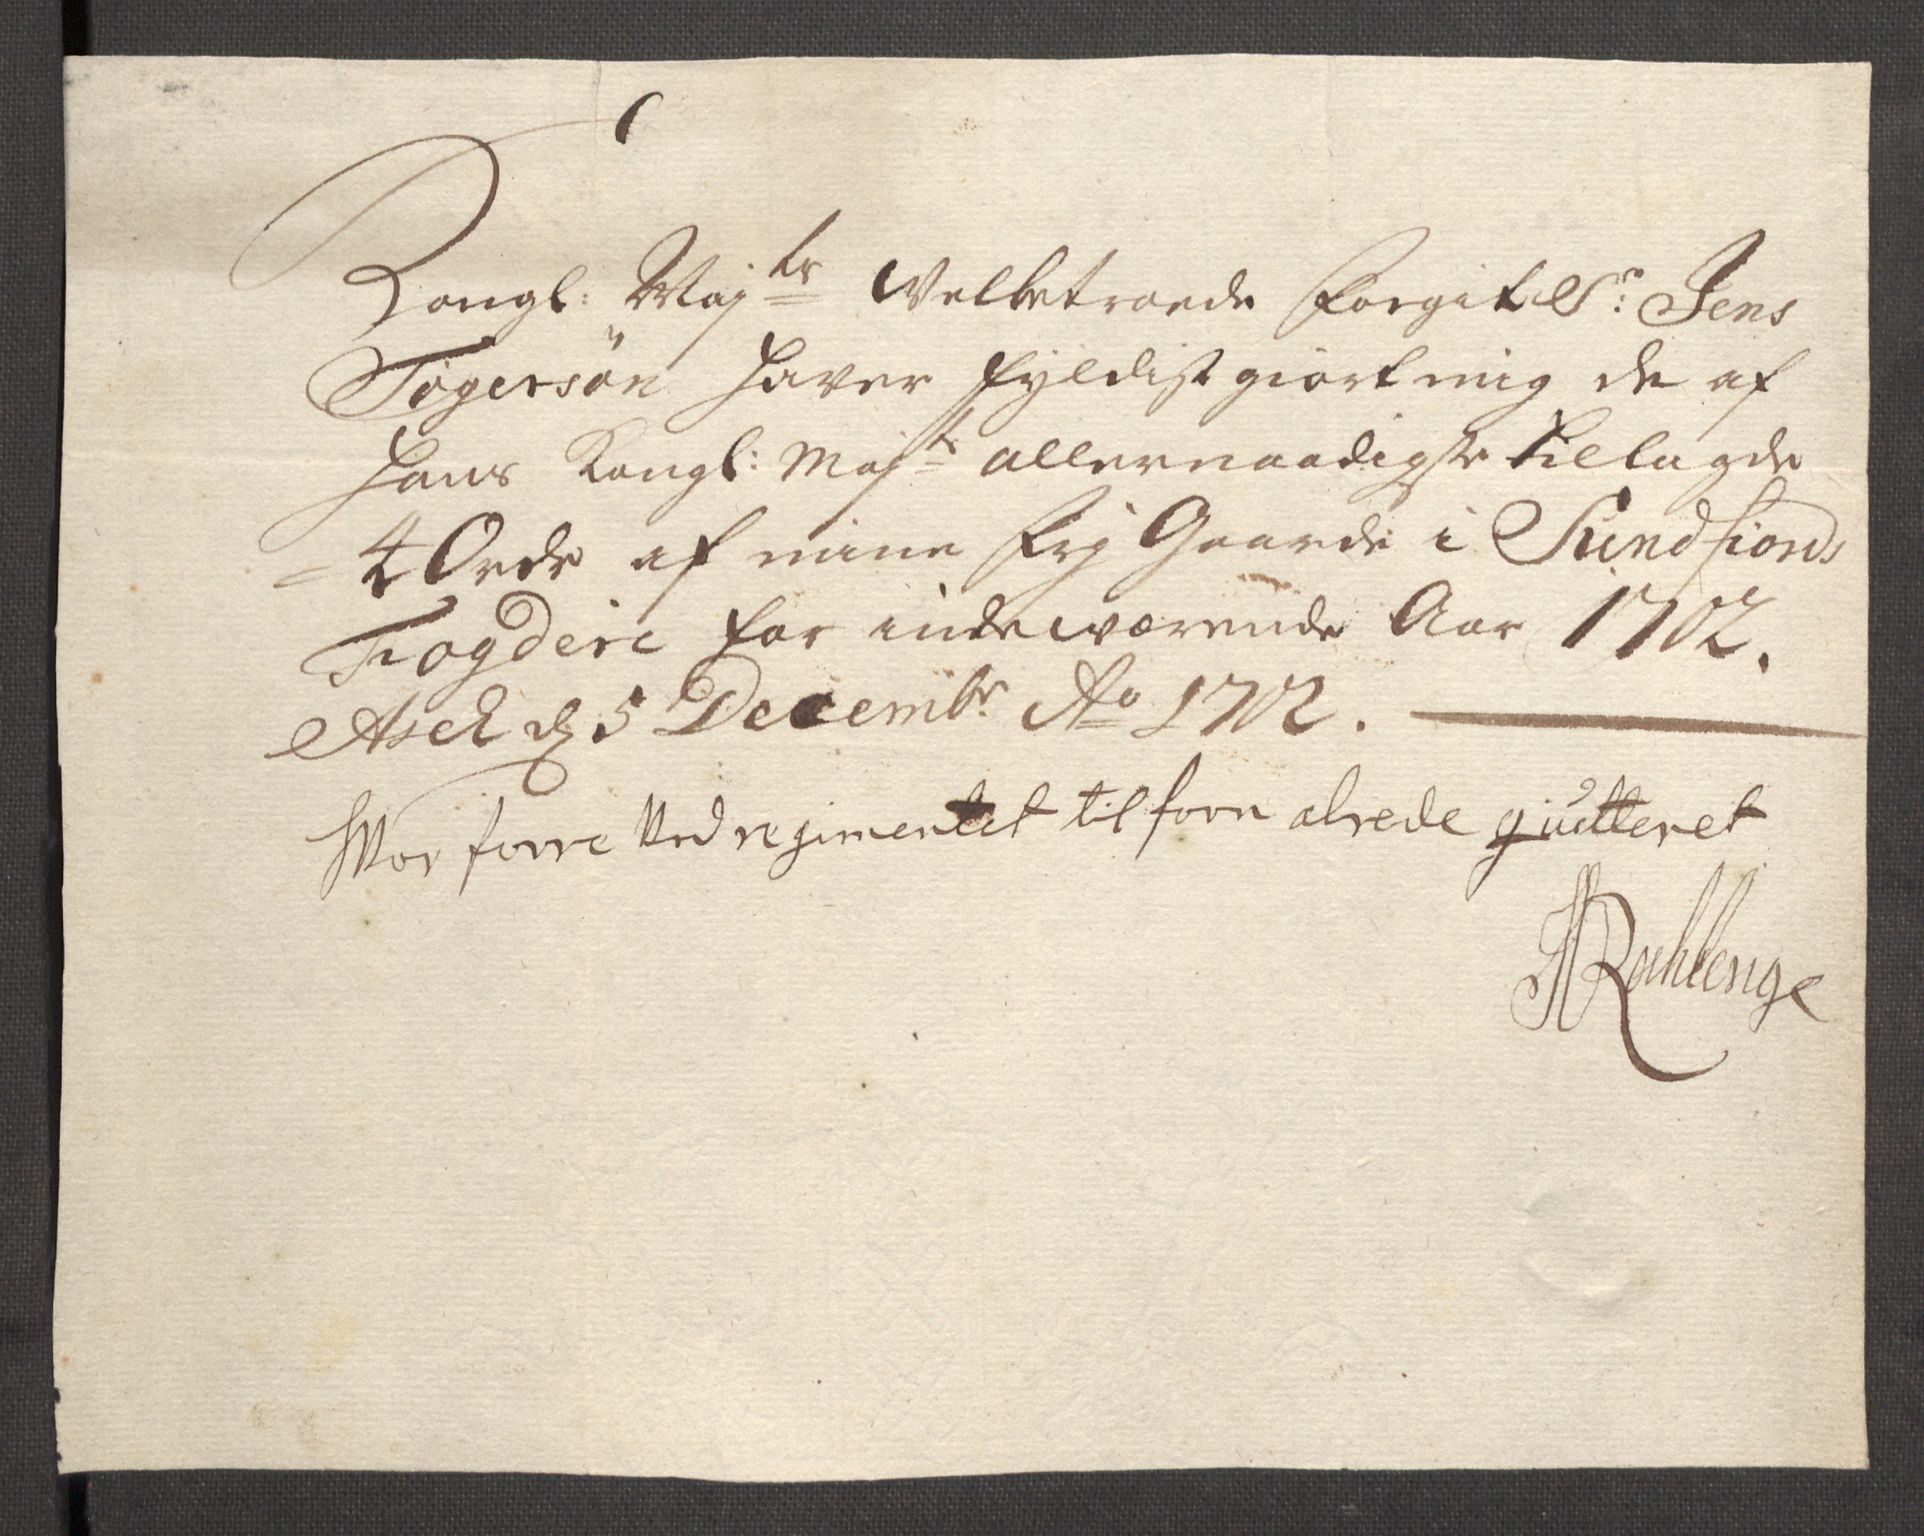 Kongl: Maj:ts Welbetroede Fogit Sr: Jens
Tøgersön hafver fyldist giort mig de af
Hans Kongl: Maj:ts allernaadigste tillagde
4 Orde af mine frj Gaarde i Sundfiords
Fogderie for indeværende Aar 1702.
Asck d 5 Decembr. Ao 1702.
Wor forre Ved regimentet tilforn alrede qvitteret